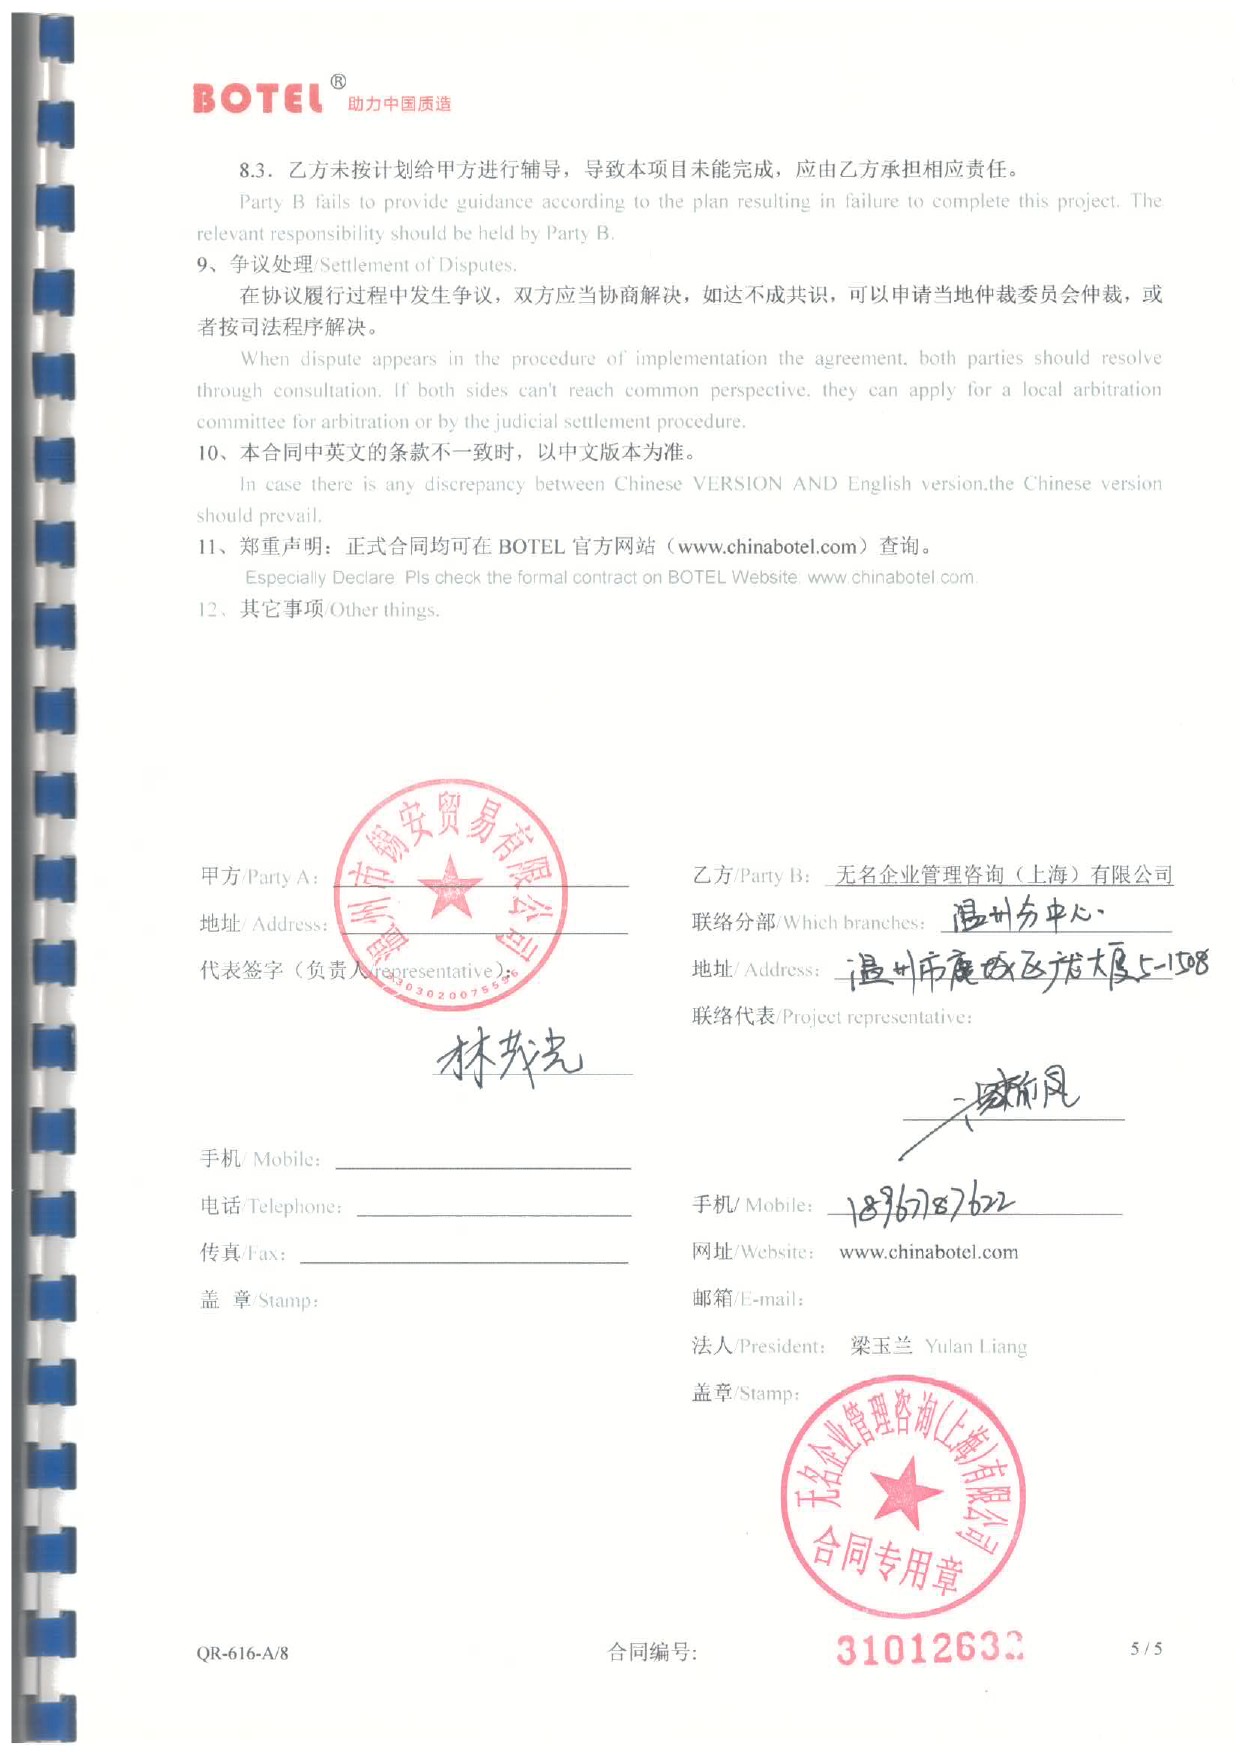 BOTEL® 助力中国质造
8.3．乙方未按计划给甲方进行辅导，导致本项目未能完成，应由乙方承担相应责任。
Party B fails to provide guidance according to the plan resulting in failure to complete this project. The
relevant responsibility should be held by Party B.
9、争议处理/Settlement of Disputes.
在协议履行过程中发生争议，双方应当协商解决，如达不成共识，可以申请当地仲裁委员会仲裁，或
者按司法程序解决。
When dispute appears in the procedure of implementation the agreement. both parties should resolve
through consultation. If both sides can't reach common perspective. they can apply for a local arbitration
committee for arbitration or by the judicial settlement procedure.
10、本合同中英文的条款不一致时，以中文版本为准。
In case there is any discrepancy between Chinese VERSION AND English version.the Chinese version
should prevail.
11、郑重声明：正式合同均可在 BOTEL 官方网站（www.chinabotel.com）查询。
Especially Declare Pls check the formal contract on BOTEL Website: www.chinabotel.com
12、其它事项/Other things.
温州市锡安贸易有限公司
甲方/Party A:
地址/ Address:
代表签字（负责人/representative）:
林茂光
手机/ Mobile:
电话/Telephone:
传真/Fax:
盖 章/Stamp:
乙方/Party B: 无名企业管理咨询（上海）有限公司
联络分部/Which branches: 温州分中心
地址/ Address: 温州市鹿城区大厦5-1508
联络代表/Project representative:
手机/ Mobile: 18967787622
网址/Website: www.chinabotel.com
邮箱/E-mail:
法人/President: 梁玉兰 Yulan Liang
盖章/Stamp:
无名企业管理咨询(上海)有限公司
合同专用章
QR-616-A/8 合同编号: 31012632 5 / 5